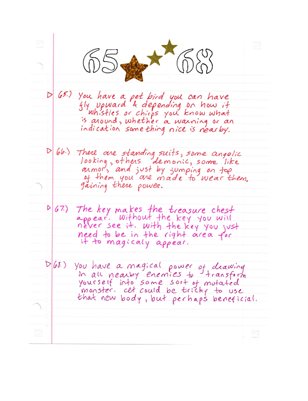 65 68
65.) You have a pet bird you can have
fly upward & depending on how it
whistles or chirps you know what
is around, whether a warning or an
indication something nice is nearby.
66.) There are standing suits, some angelic
looking, others demonic, some like
armor, and just by jumping on top
of them you are made to wear them,
gaining there power.
67.) The key makes the treasure chest
appear. Without the key you will
never see it. With the key you just
need to be in the right area for
it to magicaly appear.
68.) You have a magical power of drawing
in all nearby enemies to transform
yourself into some sort of mutated
monster. It could be tricky to use
that new body, but perhaps beneficial.